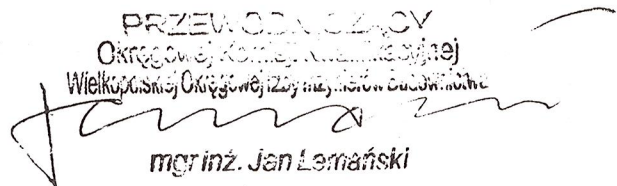 PRZEWODNICZĄCY
Okręgowej Komisji Kwalifikacyjnej
Wielkopolskiej Okręgowej Izby Inżynierów Budownictwa
mgr inż. Jan Lemański